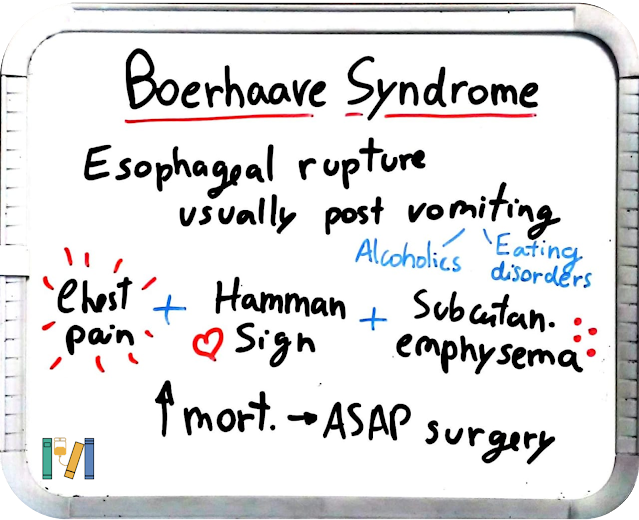 Boerhaave Syndrome
Esophageal rupture
usually post vomiting
Alcoholics
Eating
disorders
Chest
pain
+
Hamman
Sign
+
Subcutan.
emphysema
↑ mort. → ASAP surgery